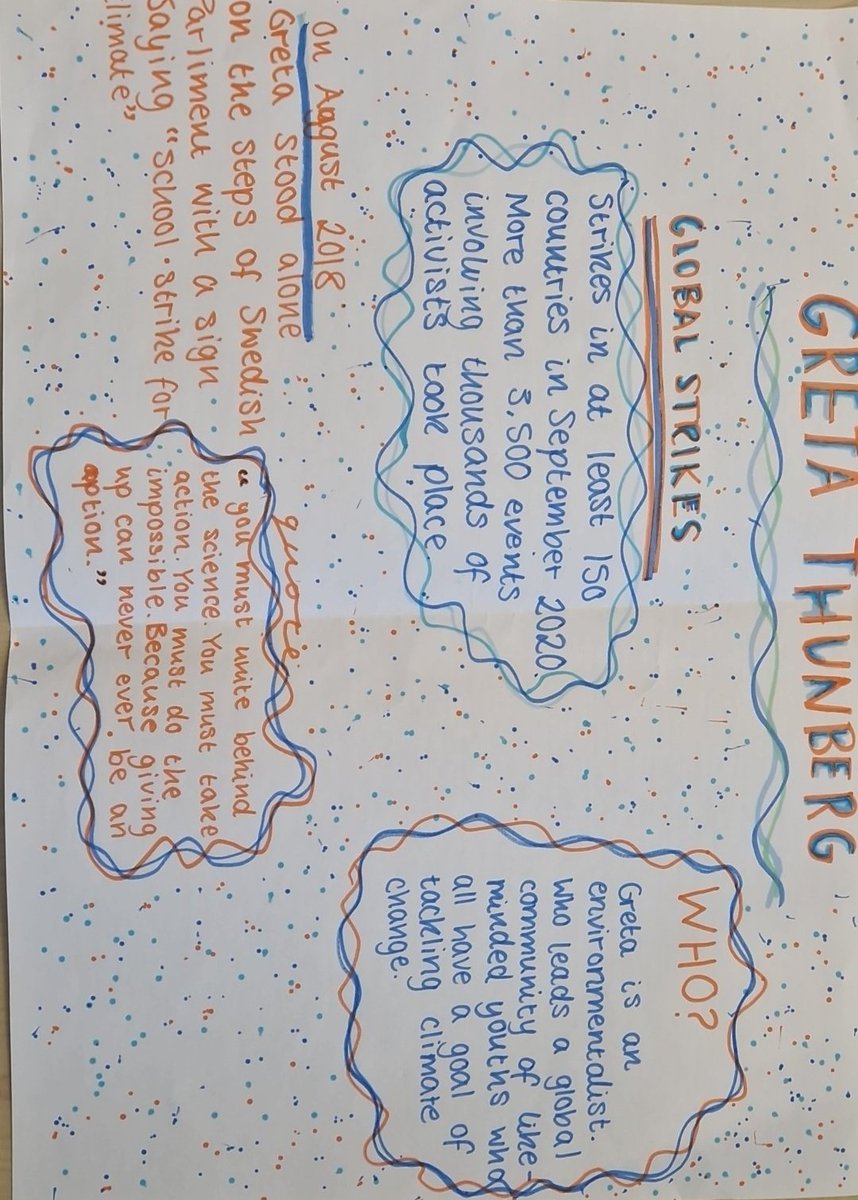 GRETA THUNBERG
GLOBAL STRIKES
Strikes in at least 150
countries in September 2020
More than 3,500 events
involving thousands of
activists took place
WHO?
Greta is an
environmentalist.
who leads a global
community of like-
minded youths who
all have a goal of
tackling climate
change.
On August 2018
Greta stood alone
on the steps of Swedish
Parliment with a sign
saying "school strike for
climate"
quote
"you must unite behind
the science. You must take
action. You must do the
impossible. Because giving
up can never ever be an
option."